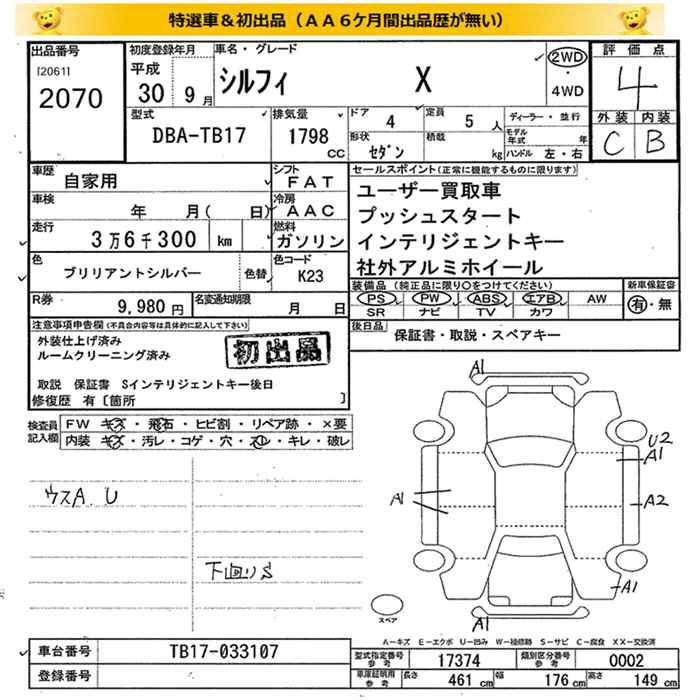 特選車＆初出品（ＡＡ６ケ月間出品歴が無い）
出品番号
[2061]
2070
初度登録年月
平成
30 9 月
車名・グレード
シルフィ X
2WD
4WD
評価点
4
外装 内装
C B
型式
DBA-TB17
排気量
1798
CC
ドア 4
定員 5 人
形状 セダン
積載 kg
ディーラー・並行
モデル年式 年
ハンドル 左・右
車歴
自家用
シフト
FAT
車検
年 月( 日)
冷房
AAC
走行
3万6千300 km
燃料
ガソリン
色
ブリリアントシルバー
色替
色コード
K23
R券
9,980 円
名変通知期限
月 日
セールスポイント(正常に機能するものに限ります)
ユーザー買取車
プッシュスタート
インテリジェントキー
社外アルミホイール
装備品 (純正品に限り○をつけてください)
新車保証書
PS PW ABS エアB AW
SR ナビ TV カワ
有・無
後日品
保証書・取説・スペアキー
注意事項申告欄(不具合内容等は具体的に記入して下さい)
外装仕上げ済み
ルームクリーニング済み
初出品
取説 保証書 Sインテリジェントキー後日
修復歴 有〔箇所 〕
検査員
記入欄
FW キズ・飛石・ヒビ割・リペア跡・×要
内装 キズ・汚レ・コゲ・穴・スレ・キレ・破レ
ウスA. U
下廻りS
A1
U2
A1
A1
A2
A1
A1
スペア
A－キズ E－エクボ U－凹み W－補修跡 S－サビ C－腐食 XX－交換済
車台番号
TB17-033107
登録番号
型式指定番号
参考
17374
類別区分番号
参考
0002
車庫証明用
参考
長さ 461 cm
幅 176 cm
高さ 149 cm